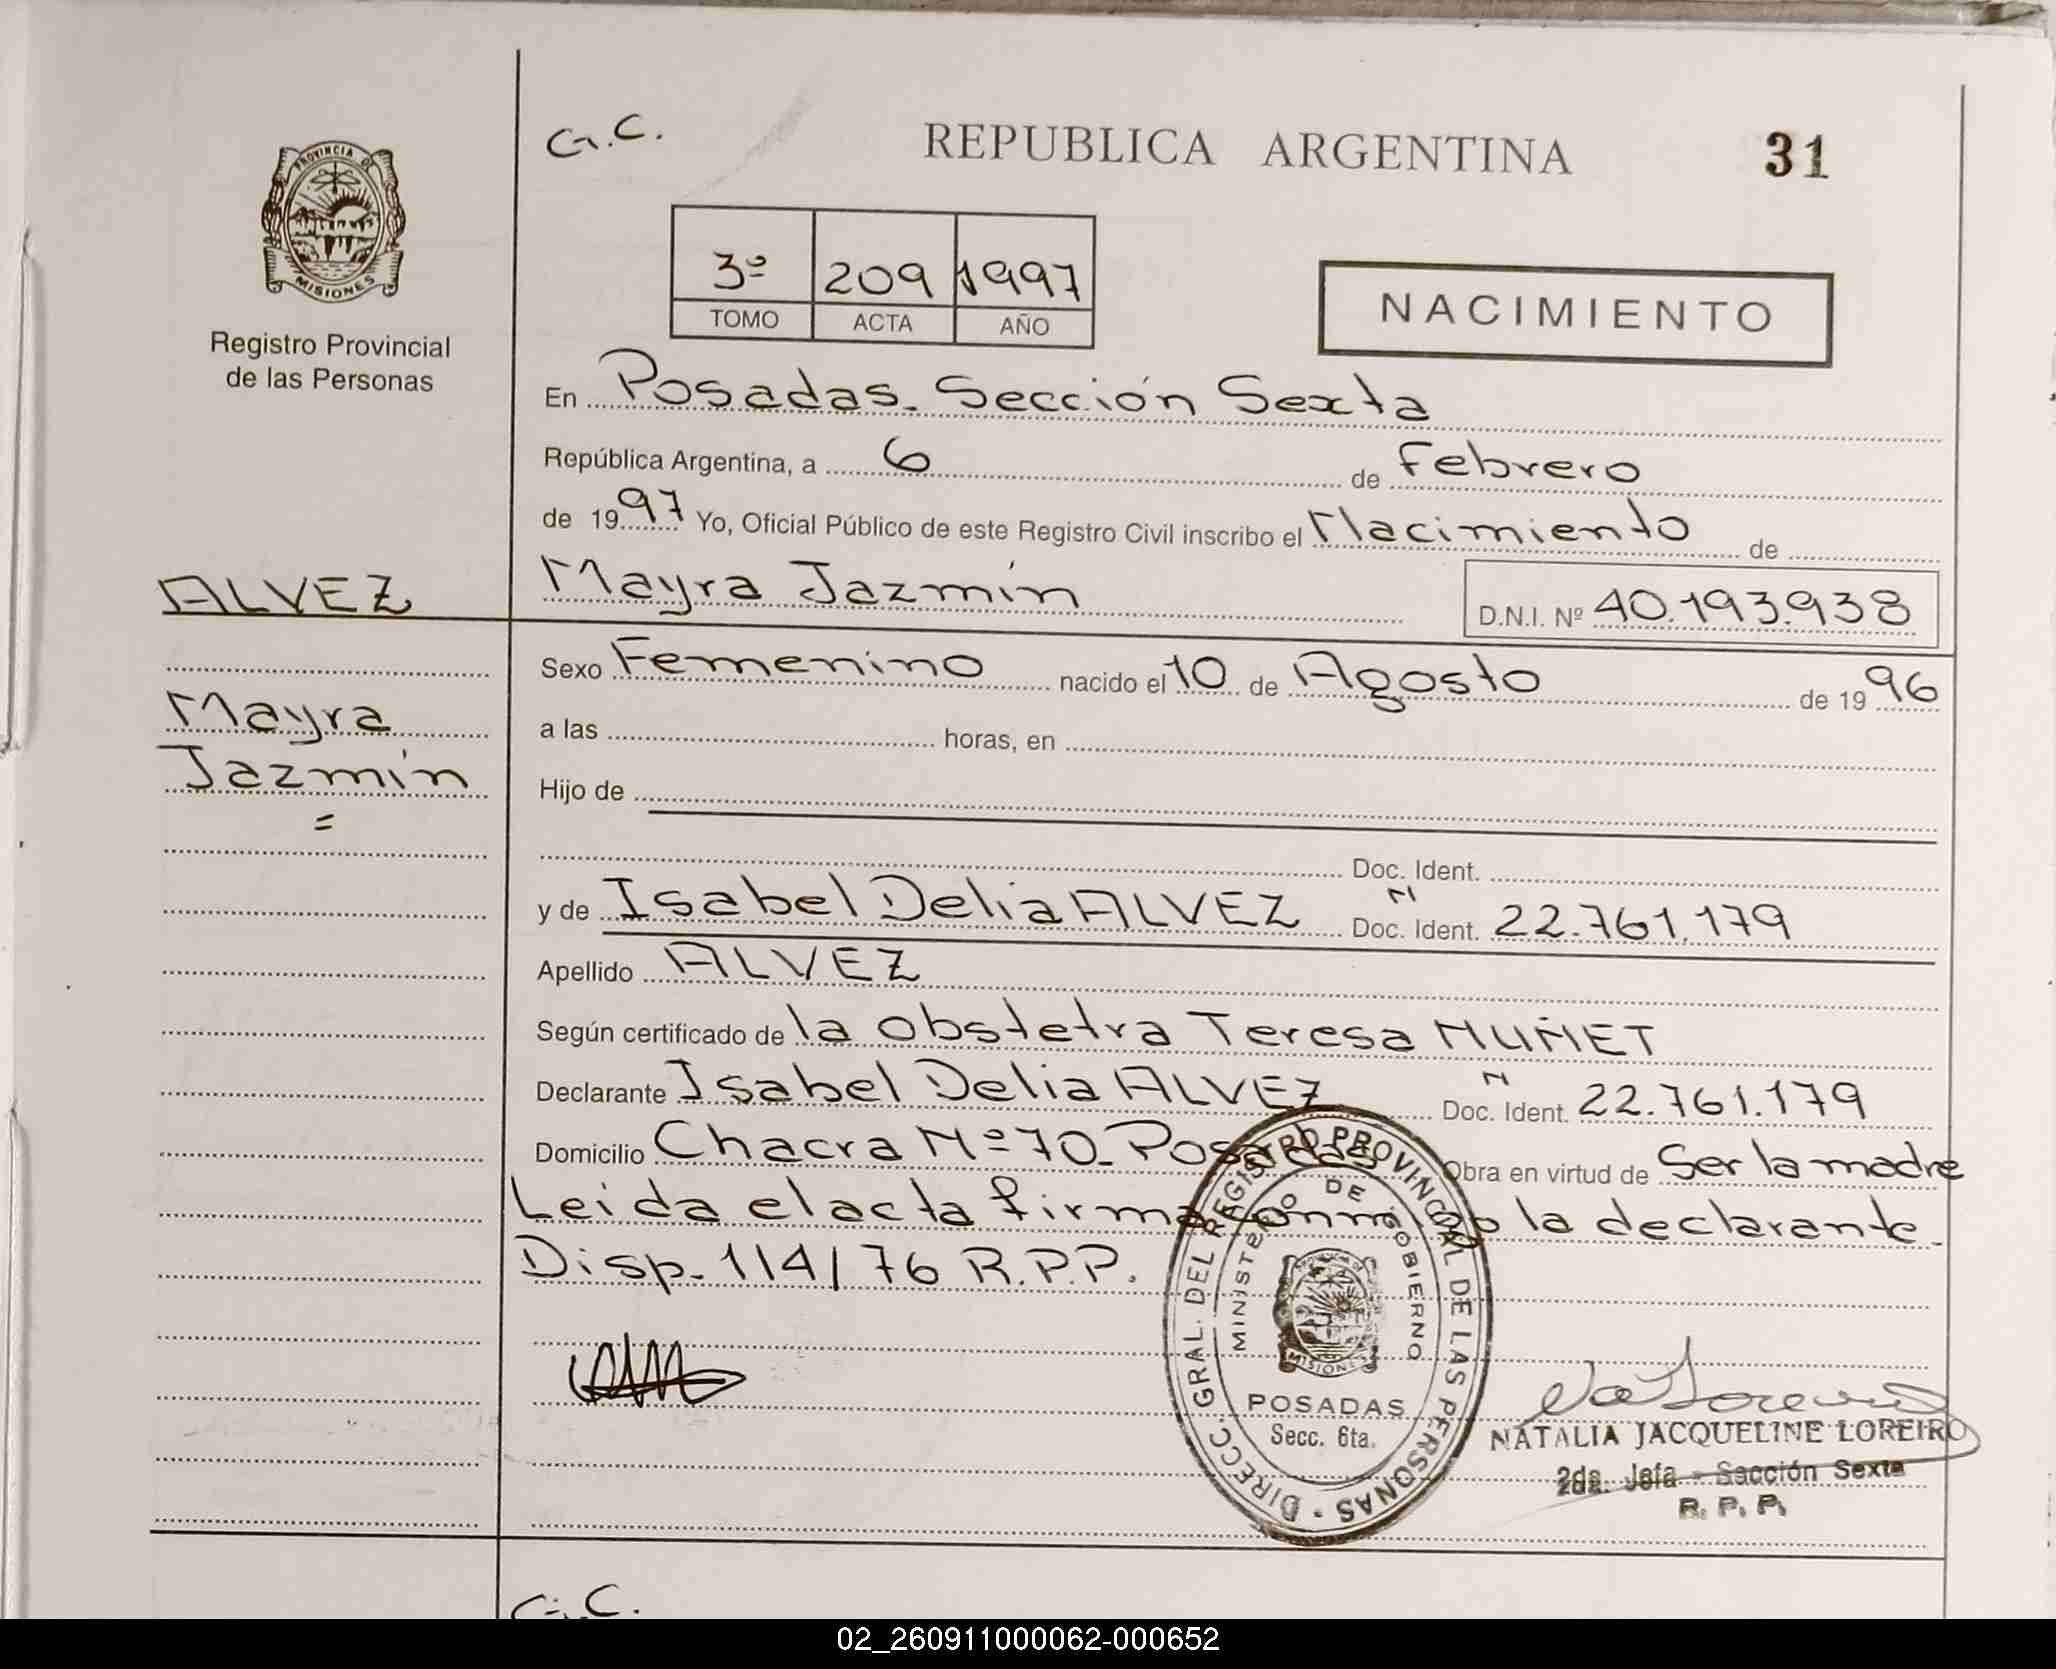 G.C.
REPUBLICA ARGENTINA
31
PROVINCIA DE
MISIONES
Registro Provincial
de las Personas
3º 209 1997
TOMO ACTA AÑO
NACIMIENTO
En Posadas. Sección Sexta
República Argentina, a 6 de Febrero
de 1997 Yo, Oficial Público de este Registro Civil inscribo el Nacimiento de
ALVEZ
Mayra Jazmín D.N.I. Nº 40.193.938
Sexo Femenino nacido el 10 de Agosto de 1996
Mayra
Jazmín
=
a las horas, en
Hijo de
Doc. Ident.
y de Isabel Delia ALVEZ Doc. Ident. N 22.761.179
Apellido ALVEZ
Según certificado de la obstetra Teresa MUÑET
Declarante Isabel Delia ALVEZ Doc. Ident. N 22.761.179
Domicilio Chacra Nº 70_ Posadas Obra en virtud de Ser la madre
Leida el acta firma conmigo la declarante.
Disp. 114/76 R.P.P.
DIRECC. GRAL. DEL REGISTRO PROVINCIAL DE LAS PERSONAS
MINISTERIO DE GOBIERNO
MISIONES
POSADAS
Secc. 6ta.
NATALIA JACQUELINE LOREIRO
2da. Jefa - Sección Sexta
R. P. P.
G.C.
02_260911000062-000652